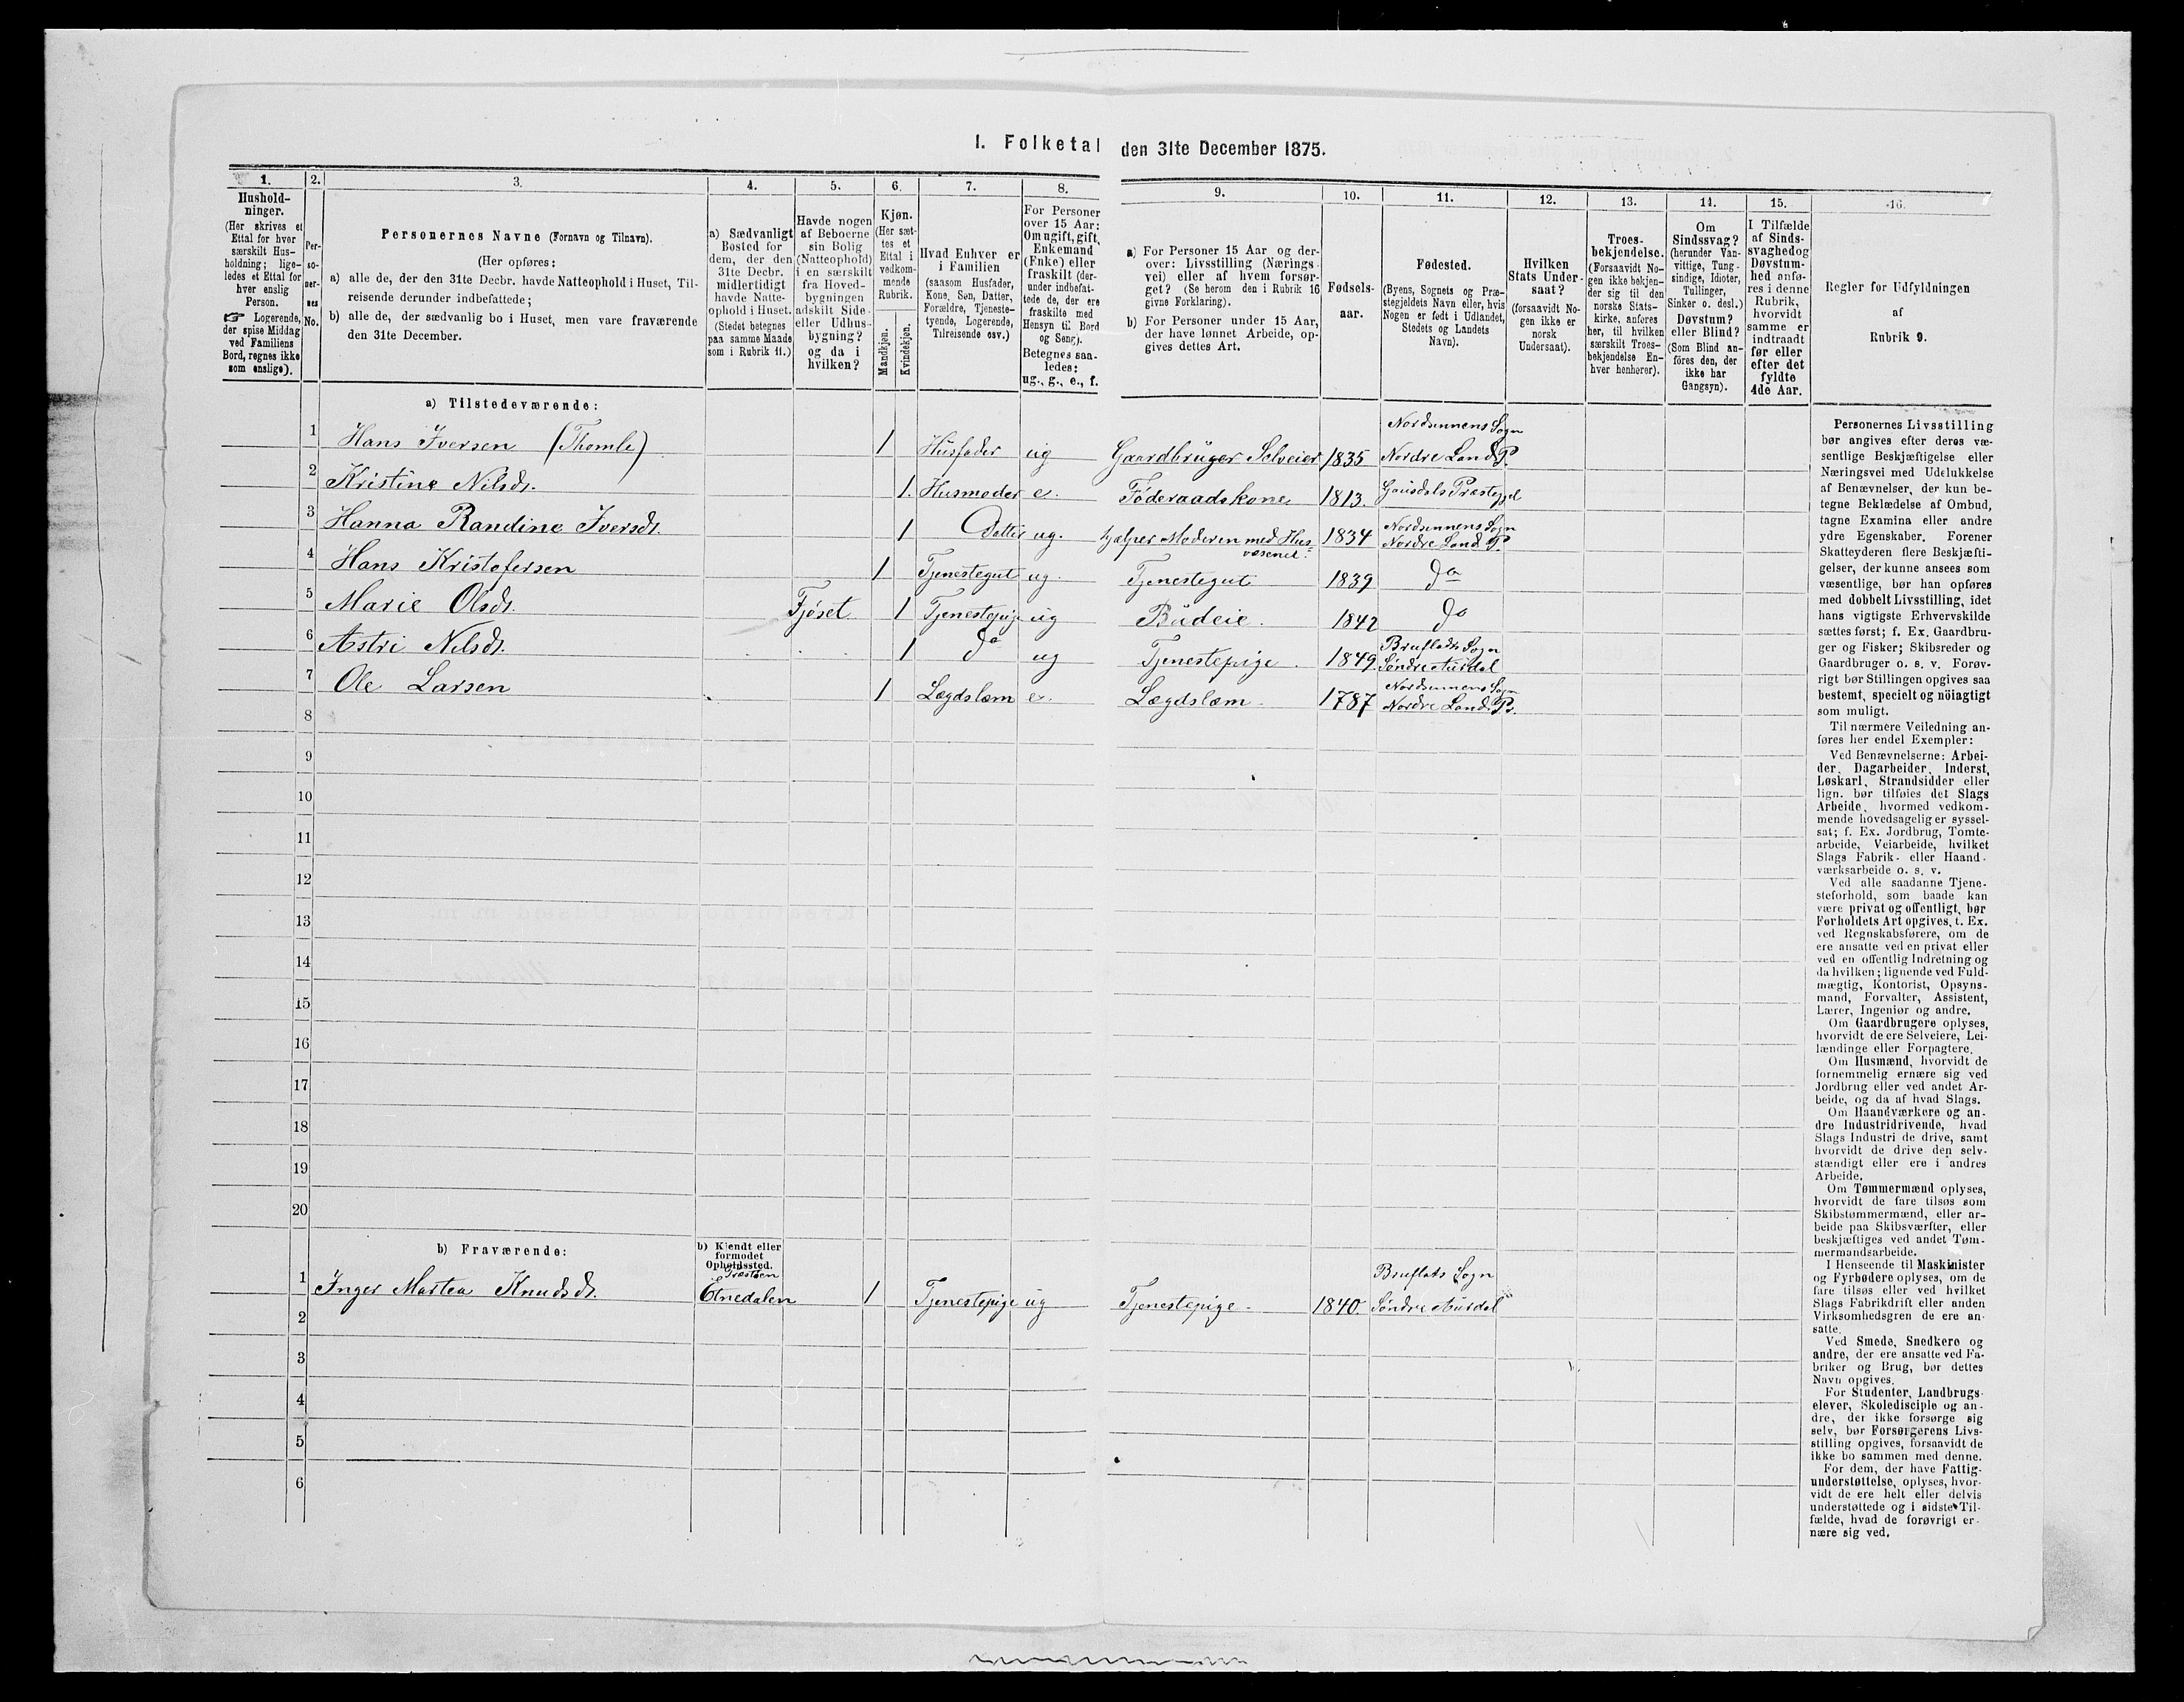 I. Folketal den 31te December 1875.
1. 2. 3. 4. 5. 6. 7. 8. 9. 10. 11. 12. 13. 14. 15. 16.
Hushold-
ninger.
(Her skrives et
Ettal for hver
særskilt Hus-
holdning; lige-
ledes et Ettal for
hver enslig
Person.
☞ Logerende,
der spise Middag
ved Familiens
Bord, regnes ikke
som enslige).
Per-
so-
ner-
nes
No.
Personernes Navne (Fornavn og Tilnavn).
(Her opføres:
a) alle de, der den 31te Decbr. havde Natteophold i Huset, Til-
reisende derunder indbefattede;
b) alle de, der sædvanlig bo i Huset, men vare fraværende
den 31te December.
a) Sædvanligt
Bosted for
dem, der den
31te Decbr.
midlertidigt
havde Natte-
ophold i Huset.
(Stedet betegnes
paa samme Maade
som i Rubrik 11.)
Havde nogen
af Beboerne
sin Bolig
(Natteophold)
i en særskilt
fra Hoved-
bygningen
adskilt Side-
eller Udhus-
bygning?
og da i
hvilken?
Kjøn.
(Her sæt-
tes et
Ettal i
vedkom-
mende
Rubrik.
Mandkjøn.
Kvindekjøn.
Hvad Enhver er
i Familien
(saasom Husfader,
Kone, Søn, Datter,
Forældre, Tjeneste-
tyende, Logerende,
Tilreisende osv.)
For Personer
over 15 Aar:
Om ugift, gift,
Enkemand
(Enke) eller
fraskilt (der-
under indbefat-
tede de, der ere
fraskilte med
Hensyn til Bord
og Seng).
Betegnes saa-
ledes:
ug., g., e., f.
a) For Personer 15 Aar og der-
over: Livsstilling (Nærings-
vei) eller af hvem forsør-
get? (Se herom den i Rubrik 16
givne Forklaring).
b) For Personer under 15 Aar,
der have lønnet Arbeide, op-
gives dettes Art.
Fødsels-
aar.
Fødested.
(Byens, Sognets og Præ-
stegjeldets Navn eller, hvis
Nogen er født i Udlandet,
Stedets og Landets
Navn).
Hvilken
Stats Under-
saat?
(forsaavidt No-
gen ikke er
norsk
Undersaat).
Troes-
bekjendelse.
(Forsaavidt No-
gen ikke bekjen-
der sig til den
norske Stats-
kirke, anføres
her, til hvilken
særskilt Troes-
bekjendelse En-
hver henhører).
Om
Sindssvag?
(herunder Van-
vittige, Tung-
sindige, Idioter,
Tullinger,
Sinker o. desl.)
Døvstum?
eller Blind?
(Som Blind an-
føres den, der
ikke har
Gangsyn).
I Tilfælde
af Sinds-
svaghed og
Døvstum-
hed anfø-
res i denne
Rubrik,
hvorvidt
samme er
indtraadt
før eller
efter det
fyldte
4de Aar.
Regler for Udfyldningen
af
Rubrik 9.
a) Tilstedeværende:
1 Hans Iversen (Thomle) 1 Husfader ug Gaardbruger Selveier 1835 Nordsinnens Sogn
Nordre Land P.
2 Kristine Nilsdt. 1. Husmoder e. Föderaadskone 1813. Gausdals Præstegjel
3 Hanna Randine Iversdt. 1 Datter ug. hjælper Moderen med Hus-
væsenet. 1834 Nordsinnens Sogn
Nordre Land P.
4 Hans Kristofersen 1 Tjenestegut ug. Tjenestegut 1839 do
5 Marie Olsdt. Fjöset 1 Tjenestepige ug Budeie. 1842 do
6 Astri Nilsdt. 1 do ug Tjenestepige. 1849 Bruflads Sogn
Söndre Aurdal
7 Ole Larsen 1 Lægdslem e. Lægdslem. 1787 Nordsinnens Sogn
Nordre Land. P.
8
9
10
11
12
13
14
15
16
17
18
19
20
b) Fraværende:
b) Kjendt eller
formodet
Opholdssted.
1 Inger Martea Knudsdt. Etnedalen 1 Tjenestepige ug Tjenestepige 1840. Bruflats Sogn
Söndre Aurdal
2
3
4
5
6
Personernes Livsstilling
bør angives efter deres væ-
sentlige Beskjæftigelse eller
Næringsvei med Udelukkelse
af Benævnelser, der kun be-
tegne Beklædelse af Ombud,
tagne Examina eller andre
ydre Egenskaber. Forener
Skatteyderen flere Beskjæfti-
gelser, der kunne ansees som
væsentlige, bør han opføres
med dobbelt Livsstilling, idet
hans vigtigste Erhvervskilde
sættes først; f. Ex. Gaardbru-
ger og Fisker; Skibsreder og
Gaardbruger o. s. v. Forøv-
rigt bør Stillingen opgives saa
bestemt, specielt og nöiagtigt
som muligt.
Til nærmere Veiledning an-
føres her endel Exempler:
Ved Benævnelserne: Arbei-
der, Dagarbeider, Inderst,
Løskarl, Strandsidder eller
lign. bør tilføies det Slags
Arbeide, hvormed vedkom-
mende hovedsagelig er syssel-
sat; f. Ex. Jordbrug, Tomte-
arbeide, Veiarbeide, hvilket
Slags Fabrik- eller Haand-
værksarbeide o. s. v.
Ved alle saadanne Tjene-
steforhold, som baade kan
være privat og offentligt, bør
Forholdets Art opgives, t. Ex.
ved Regnskabsførere, om de
ere ansatte ved en privat eller
ved en offentlig Indretning og
da hvilken; lignende ved Fuld-
mægtig, Kontorist, Opsyns-
mand, Forvalter, Assistent,
Lærer, Ingeniør og andre.
Om Gaardbrugere oplyses,
hvorvidt de ere Selveiere, Lei-
lændinge eller Forpagtere.
Om Husmænd, hvorvidt de
fornemmelig ernære sig ved
Jordbrug eller ved andet Ar-
beide, og da af hvad Slags.
Om Haandværkere og an-
dre Industridrivende, hvad
Slags Industri de drive, samt
hvorvidt de drive den selv-
stændigt eller ere i andres
Arbeide.
Om Tømmermænd oplyses,
hvorvidt de fare tilsøs som
Skibstømmermænd, eller ar-
beide paa Skibsværfter, eller
beskjæftiges ved andet Tøm-
mermandsarbeide.
I Henseende til Maskinister
og Fyrbødere oplyses, om de
fare tilsøs eller ved hvilket
Slags Fabrikdrift eller anden
Virksomhedsgren de ere an-
satte.
Ved Smede, Snedkere og
andre, der ere ansatte ved Fa-
briker og Brug, bør dettes
Navn opgives.
For Studenter, Landbrugs-
elever, Skoledisciple og an-
dre, der ikke forsørge sig
selv, bør Forsørgerens Livs-
stilling opgives, forsaavidt de
ikke bo sammen med denne.
For dem, der have Fattig-
understøttelse, oplyses, hvor-
vidt de ere helt eller delvis
understøttede og i sidste Til-
fælde, hvad de forøvrigt er-
nære sig ved.